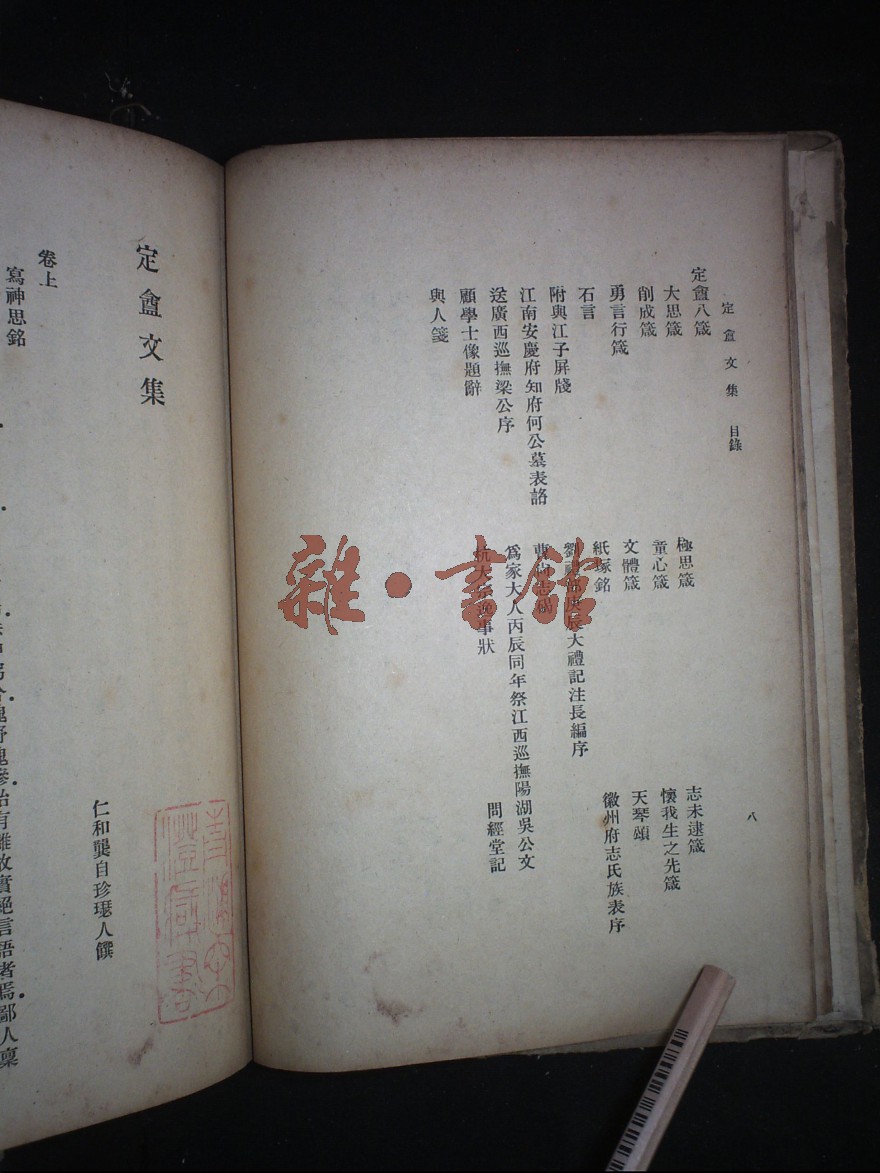 定盦文集 目錄 八
定盦八箴
大思箴 極思箴 志未逮箴
削成箴 童心箴 懷我生之先箴
勇言行箴 文體箴 天琴頌
石言 紙塚銘 徽州府志氏族表序
附與江子屏牋 劉禮部庚辰大禮記注長編序
江南安慶府知府何公墓表詺
送廣西巡撫梁公序 爲家大人丙辰同年祭江西巡撫陽湖吳公文
顧學士像題辭 杭大宗逸事狀 問經堂記
與人箋
雜·書館
定盦文集
仁和龔自珍璱人饌
卷上
寫神思銘
有離故實絕言語者焉鄙人稟